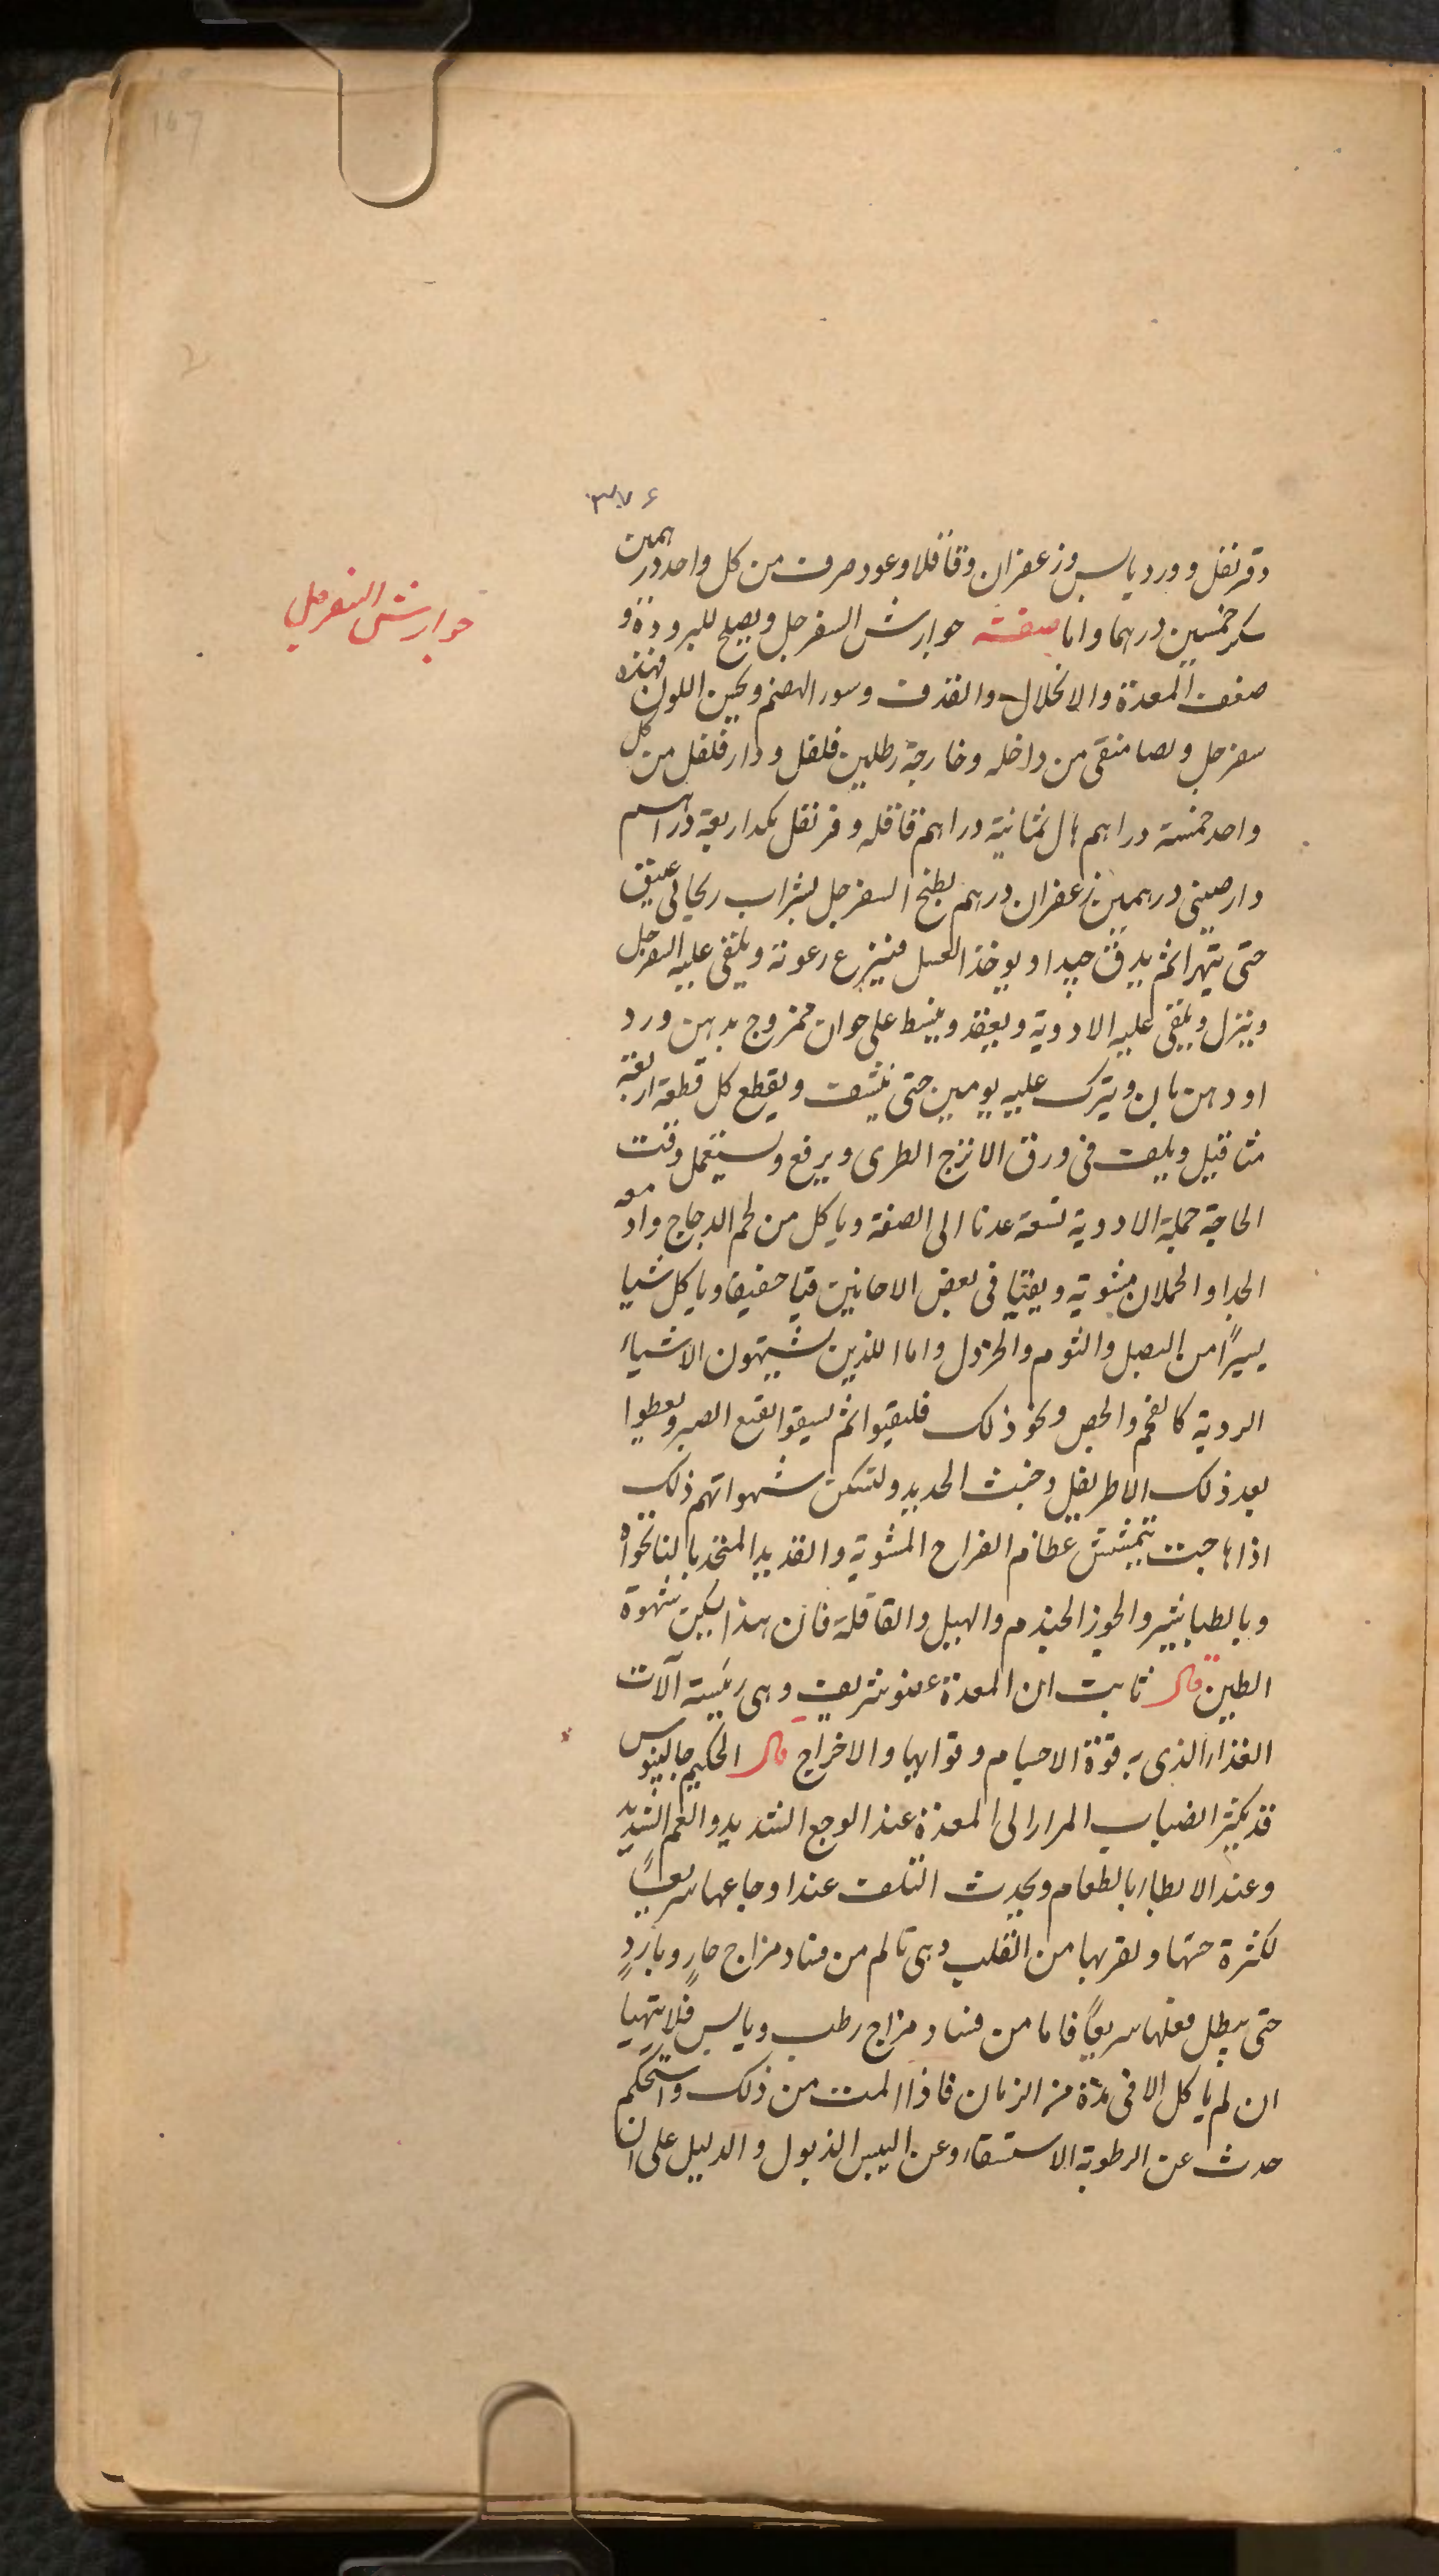 167
٣٧٦
وقرنفل وورد يابس وزعفران وقاقلا وعود صرف من كل واحد درهمين
سكر خمسين درهما واما صفة جوارش السفرجل ويصلح للبرودة و
جوارش السفرجل
ضعف المعدة والانحلال والقذف وسور الهضم ويحسن اللون فهذه
سفرجل وصا منقى من داخله وخارجه رطلين فلفل ودارفلفل من كل
واحد خمسة دراهم هال ثمانية دراهم قاقله وقرنفل بكد اربعة دراهم
دارصينى درهمين زعفران درهم يطبخ السفرجل بشراب ريحانى عتيق
حتى يتهرا ثم يدق جيدا ويوخذ العسل فينزع رعوته ويلقى عليه السفرجل
وينزل ويلقى عليه الادوية ويعقد ويبسط على خوان ممزوج بدهن ورد
او دهن بان ويترك عليه يومين حتى ينشف ويقطع كل قطعة اربعة
مثاقيل ويلف فى ورق الاترج الطرى ويرفع ويستعمل وقت
الحاجة جملة الادوية تسعة عدنا الى الصفة وياكل من لحم الدجاج وادمغه
الجدا والحملان مشوية ويقيا فى بعض الاحانين قيا خفيفا وياكل شيا
يسيرًا من البصل والثوم والخردل واما الذين يشتهون الاشياء
الردية كالفحم والجص ونحو ذلك فليقيوا ثم ليسقوا نقيع الصبر ويعطوا
بعد ذلك الاطريفل وخبث الحديد ولتسكن شهواتهم ذلك
اذا هاجت بتمشش عظام الفراخ المشوية والقديد المتخذ بالنانخواه
وبالطباشير والجوز الجندم والهيل والقاقلة فان هذا يسكن شهوة
الطين قال ثابت ان المعدة عضو شريف وهى رئيسة آلات
الغذاء الذى به قوة الاجسام وقوابها والاخراج قال الحكيم جالينوس
قد يكثر انصباب المرار الى المعدة عند الوجع الشديد والغم الشديد
وعند الابطا بالطعام ويحدث التلف عند اوجاعها سريعًا
لكثرة حسها ولقربها من القلب وهى تالم من فساد مزاج حارٍ وباردٍ
حتى يبطل فعلها سريعًا فاما من فساد مزاج رطب ويابس فلا يتهيا
ان لم ياكل الا فى مدة من الزمان فاذا المت من ذلك واستحكم
حدث عن الرطوبة الاستسقاء وعن اليبس الذبول والدليل على ان